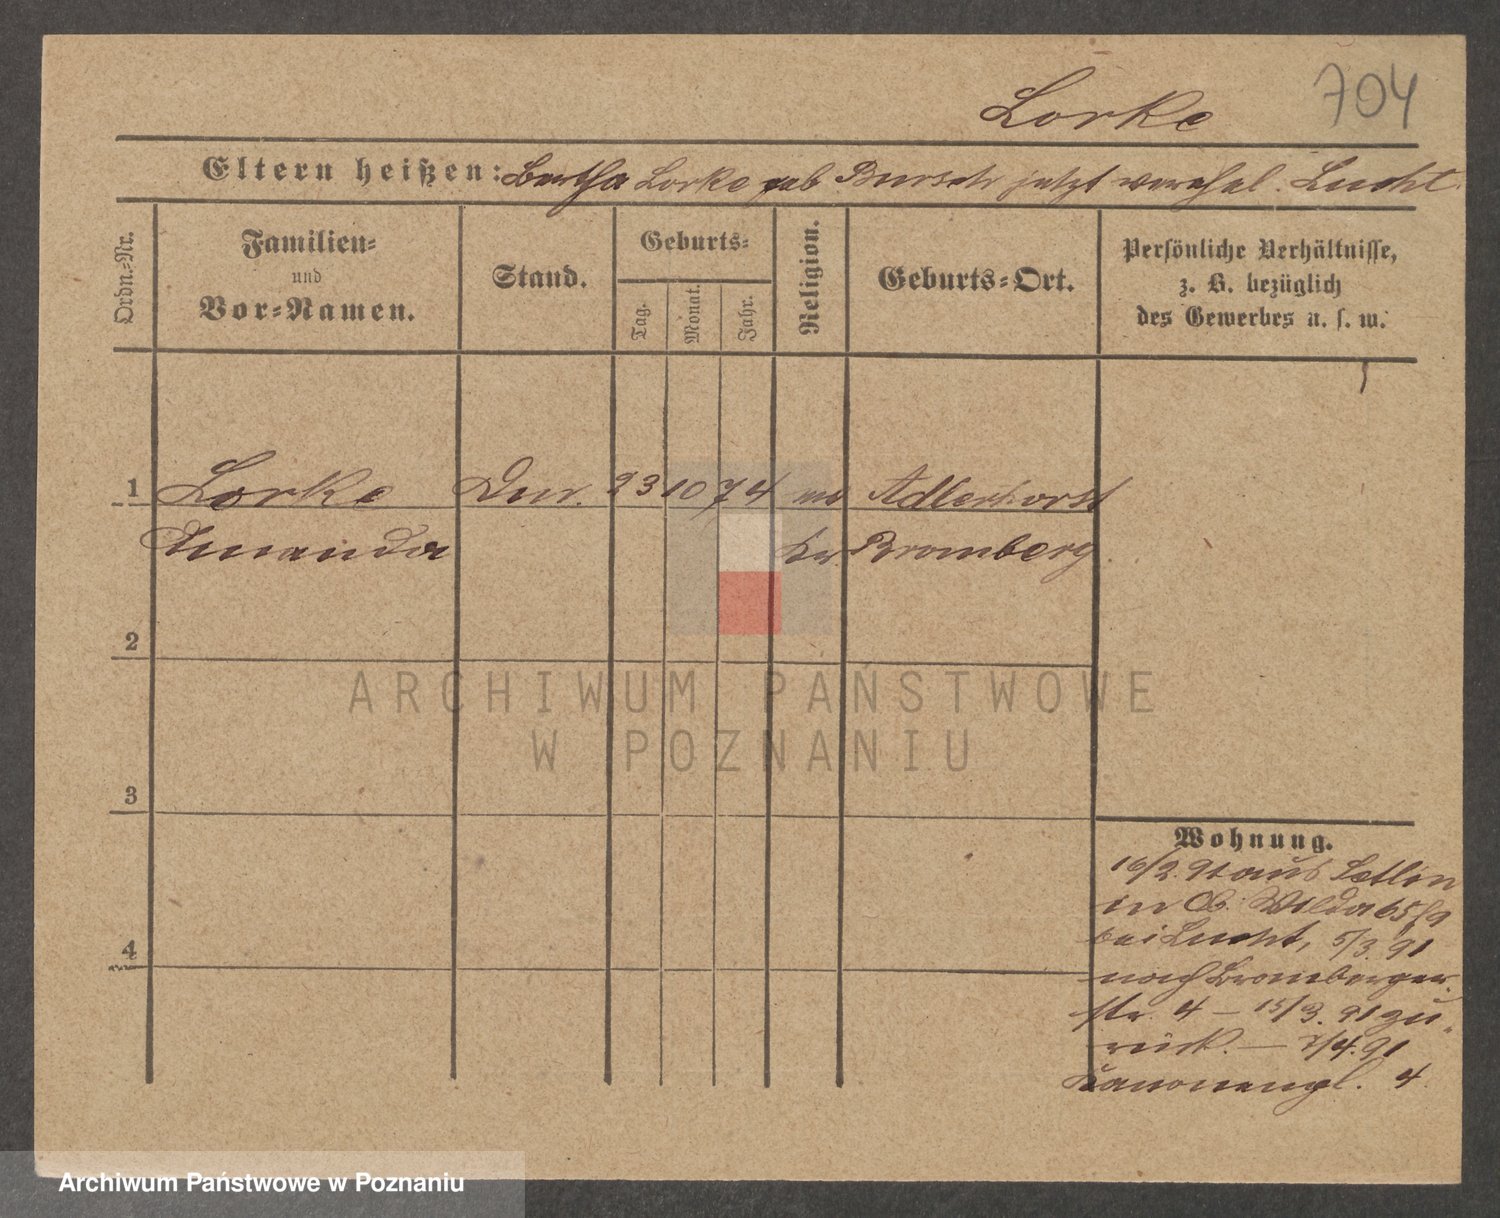 Lorke 704
Eltern heißen: Bertha Lorke geb Bursch jetzt verehel. Lucht
Ordn.-Nr.
Familien-
und
Vor-Namen.
Stand.
Geburts-
Tag.
Monat.
Jahr.
Religion.
Geburts-Ort.
Persönliche Verhältnisse,
z. B. bezüglich
des Gewerbes u. s. w.
1 Lorke 23 10 74 Adlerhorst
Amanda Kr. Bromberg
2
ARCHIWUM PAŃSTWOWE
W POZNANIU
3
Wohnung.
16/2. 91 aus
in Ob. Wilda 65
4
bei Lucht, 5/3. 91
nach Bromberger
str. 4 – 15/3. 91 zu-
rück. — 7/4. 91
Kanonenpl. 4
Archiwum Państwowe w Poznaniu